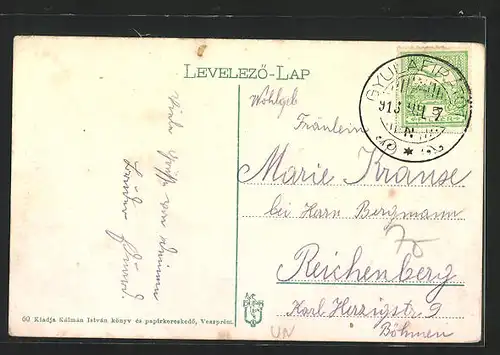 LEVELEZŐ-LAP
GYULAFIRÁTÓT
913
Wohlgeb
Fräulein
Marie Krause
bei Herrn Bergmann
Reichenberg
Karl Herzigstr 9
Böhmen
Viele Grüße von deinem
Bruder
60 Kiadja Kálmán István könyv és papírkereskedő, Veszprém.
UN